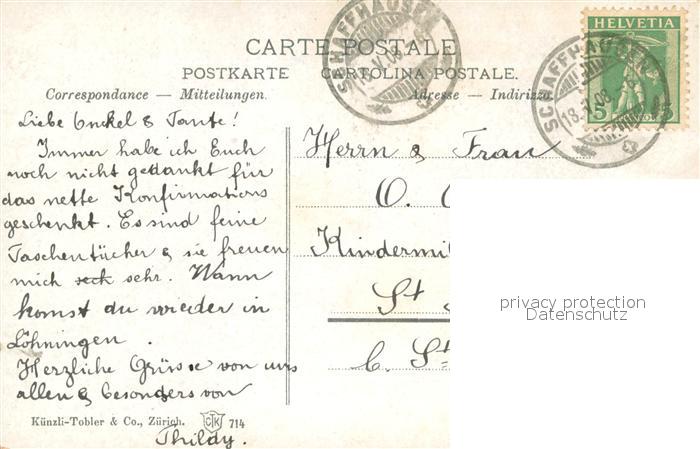 CARTE POSTALE
POSTKARTE CARTOLINA POSTALE.
Correspondance — Mitteilungen. Adresse — Indirizzo.
HELVETIA
5
SCHAFFHAUSEN
SCHAFFHAUSEN
18.V.08
Liebe Onckel & Tante!
Immer habe ich Euch
noch nicht gedankt für
das nette Konfirmations
geschenkt. Es sind feine
Taschentücher & sie freuen
mich sehr. Wann
komst du wieder in
Löhningen.
Herzliche Grüsse von uns
allen & besonders von
Thildy.
Herrn & Frau
O.
Kindermil
St
b. St
privacy protection
Datenschutz
Künzli-Tobler & Co., Zürich. CTK 714